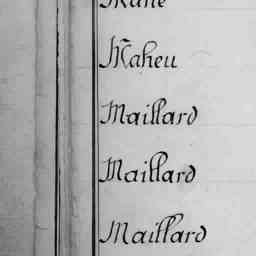 Maheu
Maillard
Maillard
Maillard